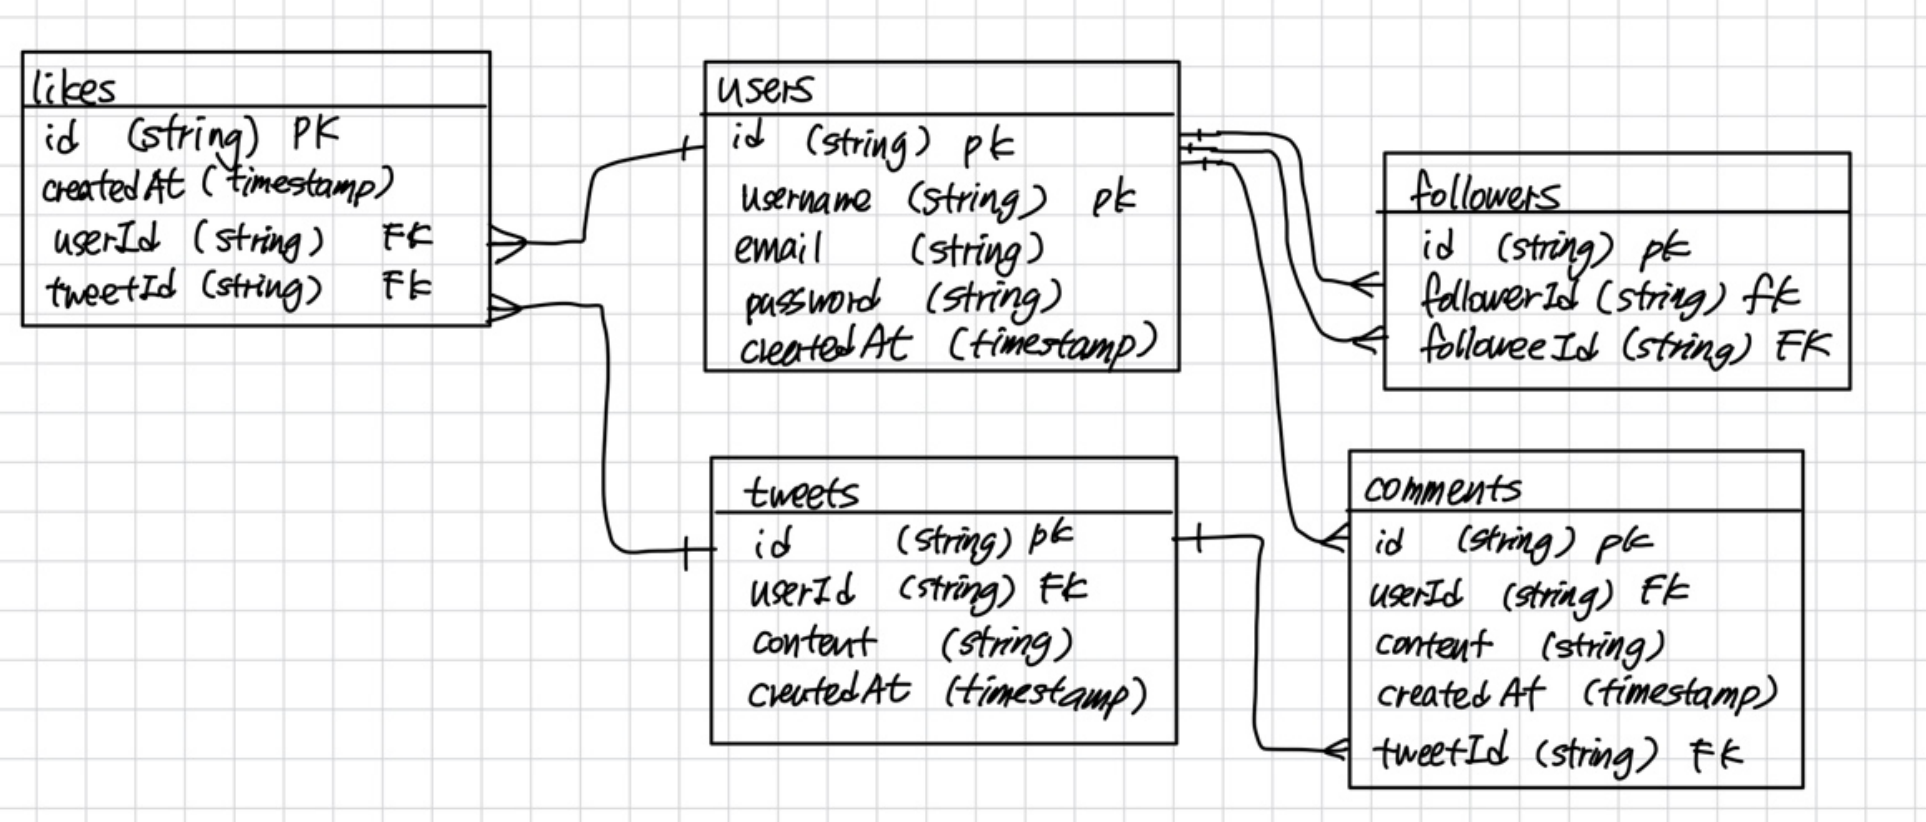 likes
id (string) PK
createdAt (timestamp)
userId (string) FK
tweetId (string) Fk
users
id (string) pk
username (string) pk
email (string)
password (string)
createdAt (timestamp)
followers
id (string) pk
followerId (string) fk
followeeId (string) FK
tweets
id (string) pk
userId (string) Fk
content (string)
createdAt (timestamp)
comments
id (string) pk
userId (string) Fk
content (string)
createdAt (timestamp)
tweetId (string) Fk